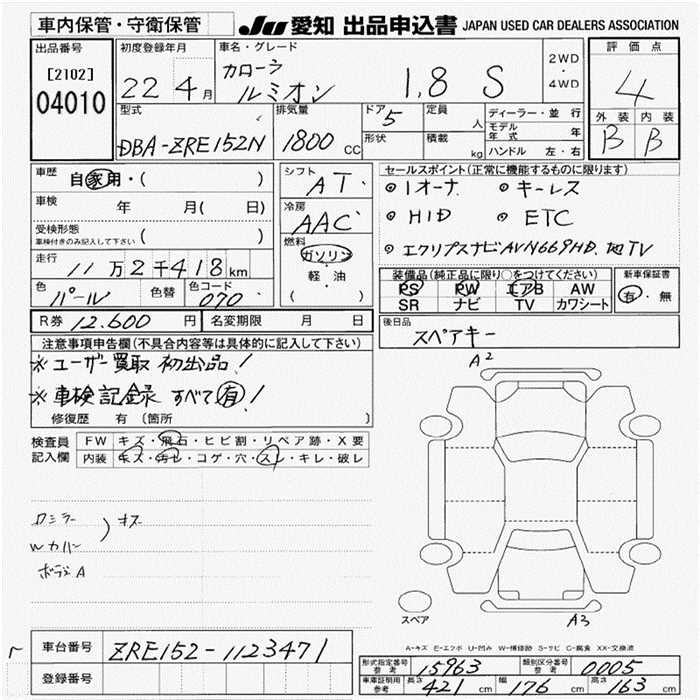 車内保管・守衛保管
JU 愛知 出品申込書 JAPAN USED CAR DEALERS ASSOCIATION
出品番号
[2102]
04010
初度登録年月
22 年 4 月
車名・グレード
カローラ
ルミオン 1,8 S
2WD
・
4WD
評価点
4
外装 内装
B B
型式
DBA-ZRE152N
排気量
1800 CC
ドア 5
形状
定員 人
積載 kg
ディーラー・並行
モデル年式 年
ハンドル 左・右
車歴 自家用・( )
車検 年 月( 日)
受検形態
車検付きのみ記入して下さい ( )
走行 11万2千418km
色 パール 色替 色コード 070
シフト AT
冷房 AAC
燃料
ガソリン
軽・油
( )
セールスポイント(正常に機能するものに限ります)
◎1オーナー ◎キーレス
◎HID ◎ETC
◎エクリプスナビAVN669HD. 地TV
装備品(純正品に限り○をつけてください)
PS PW エアB AW
SR ナビ TV カワシート
新車保証書
有・無
R券 12.600 円 名変期限 月 日
後日品
スペアキー
注意事項申告欄(不具合内容等は具体的に記入して下さい)
※ユーザー買取 初出品!
※車検記録 すべて有!
修復歴 有(箇所 )
検査員
記入欄
FW キズ・飛石・ヒビ割・リペア跡・X要
内装 キズ・汚レ・コゲ・穴・スレ・キレ・破レ
A2
キズ
Wカバー
A3
スペア
A-キズ E-エクボ U-凹み W-補修跡 S-サビ C-腐食 XX-交換済
車台番号 ZRE152-1123471
登録番号
形式指定番号
参考 15963
類別区分番号
参考 0005
車庫証明用
参考 長さ 421 cm 幅 176 cm 高さ 163 cm